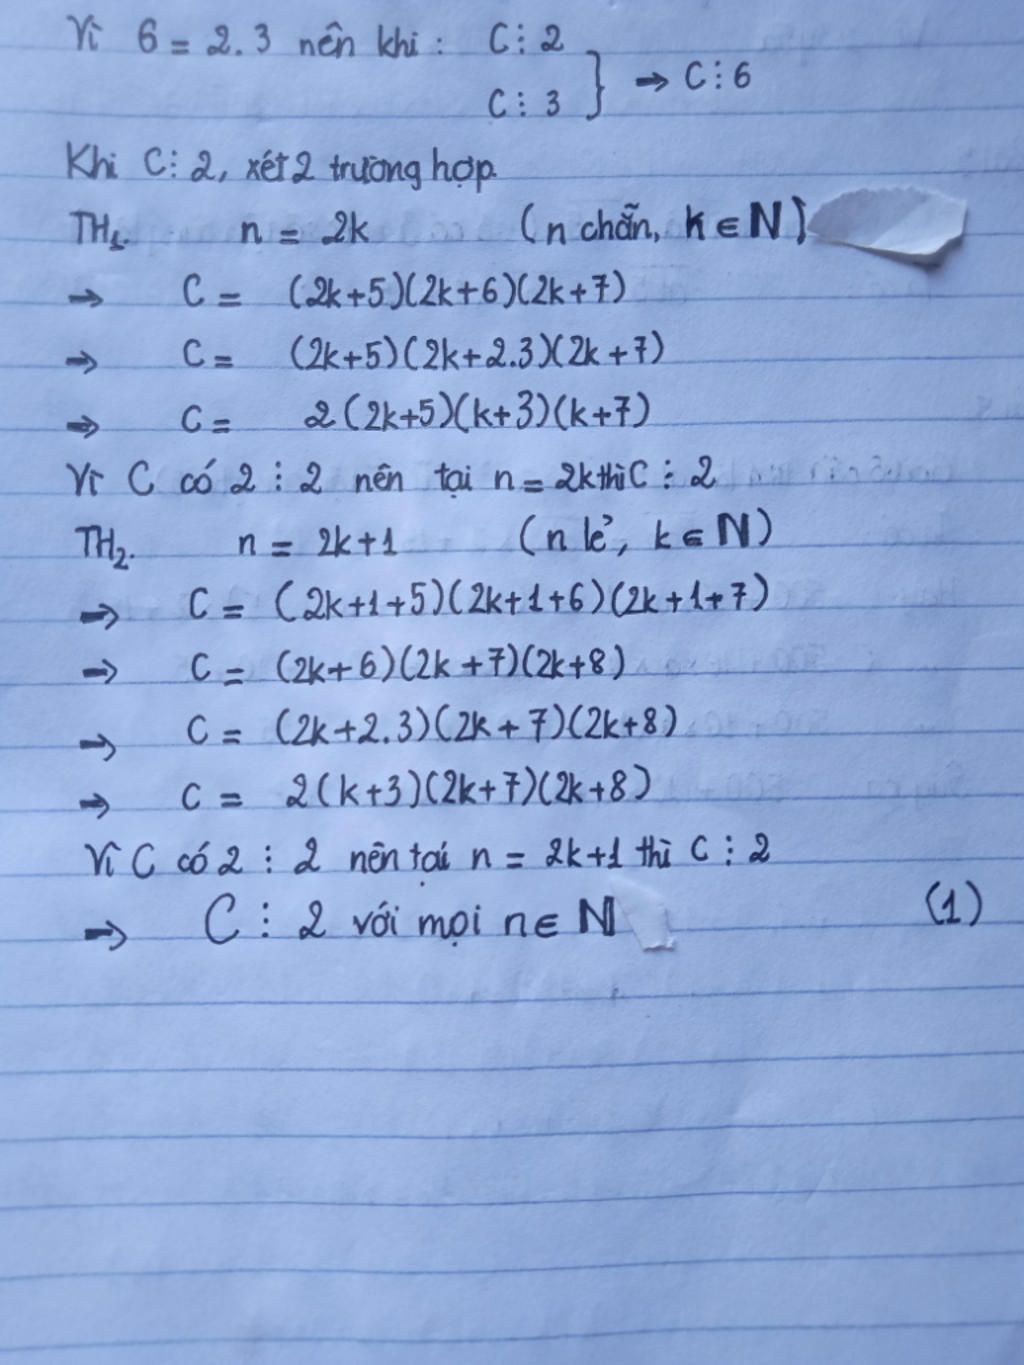 Vì 6 = 2.3 nên khi : C⋮2
C⋮3 } → C⋮6
Khi C⋮2, xét 2 trường hợp.
TH₁. n = 2k (n chẵn, k ∈ N)
→ C = (2k+5)(2k+6)(2k+7)
→ C = (2k+5)(2k+2.3)(2k+7)
→ C = 2(2k+5)(k+3)(k+7)
Vì C có 2 ⋮ 2 nên tại n = 2k thì C ⋮ 2
TH₂. n = 2k+1 (n lẻ, k ∈ N)
→ C = (2k+1+5)(2k+1+6)(2k+1+7)
→ C = (2k+6)(2k+7)(2k+8)
→ C = (2k+2.3)(2k+7)(2k+8)
→ C = 2(k+3)(2k+7)(2k+8)
Vì C có 2 ⋮ 2 nên tại n = 2k+1 thì C ⋮ 2
→ C ⋮ 2 với mọi n ∈ N (1)